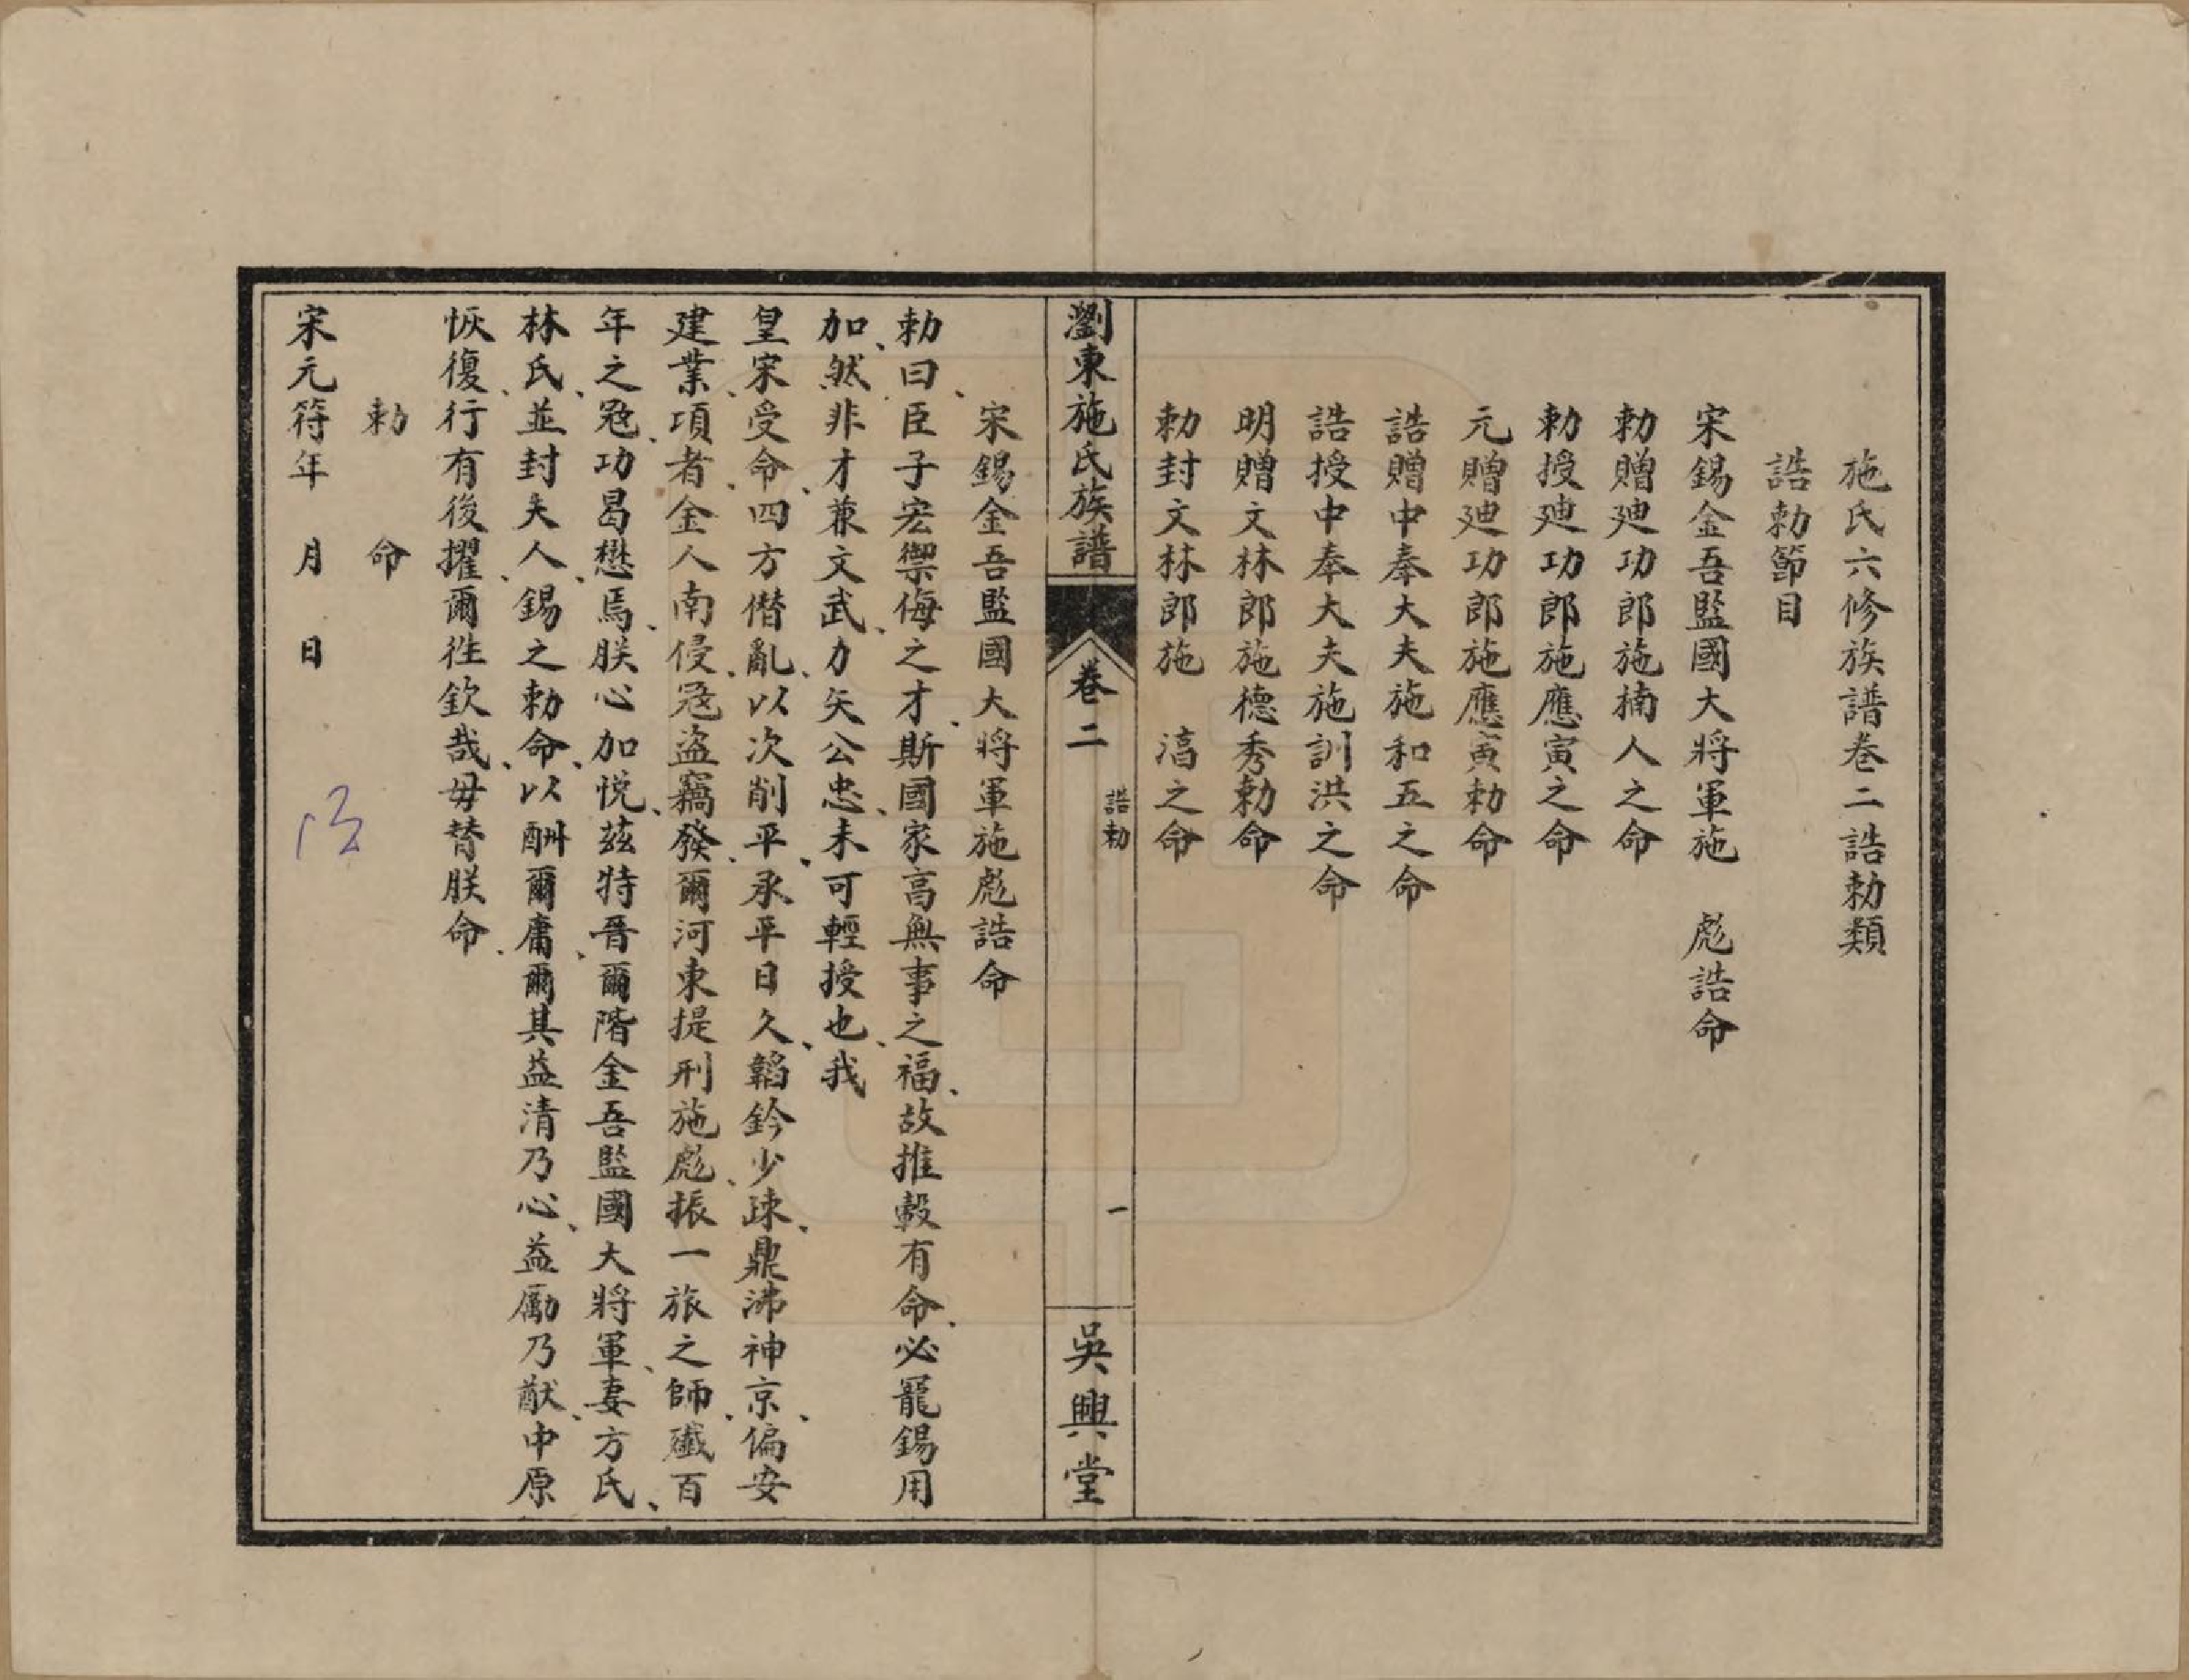 施氏六修族譜卷二誥勅類
誥勅節目
宋錫金吾監國大將軍施　彪誥命
勅贈廸功郎施楠人之命
勅授廸功郎施應寅之命
元贈廸功郎施應寅勅命
誥贈中奉大夫施和五之命
誥授中奉大夫施訓洪之命
明贈文林郎施德秀勅命
勅封文林郎施　湻之命
瀏東施氏族譜
卷二
誥勅
一
吳興堂
宋錫金吾監國大將軍施彪誥命
勅曰、臣子宏禦侮之才、斯國家高無事之福、故推轂有命、必寵錫用
加、然非才兼文武、力矢公忠、未可輕授也、我
皇宋受命、四方僭亂、以次削平、承平日久、韜鈐少疎、鼎沸神京、偏安
建業、項者、金人南侵、寇盗竊發、爾河東提刑施彪、振一旅之師、殲百
年之寇、功曷懋焉、朕心加悅、茲特晉爾階金吾監國大將軍、妻方氏、
林氏、並封夫人、錫之勅命、以酬爾庸、爾其益清乃心、益勵乃猷、中原
恢復、行有後擢、爾徃欽哉、毋替朕命、
勅　命
宋元符年　月　日